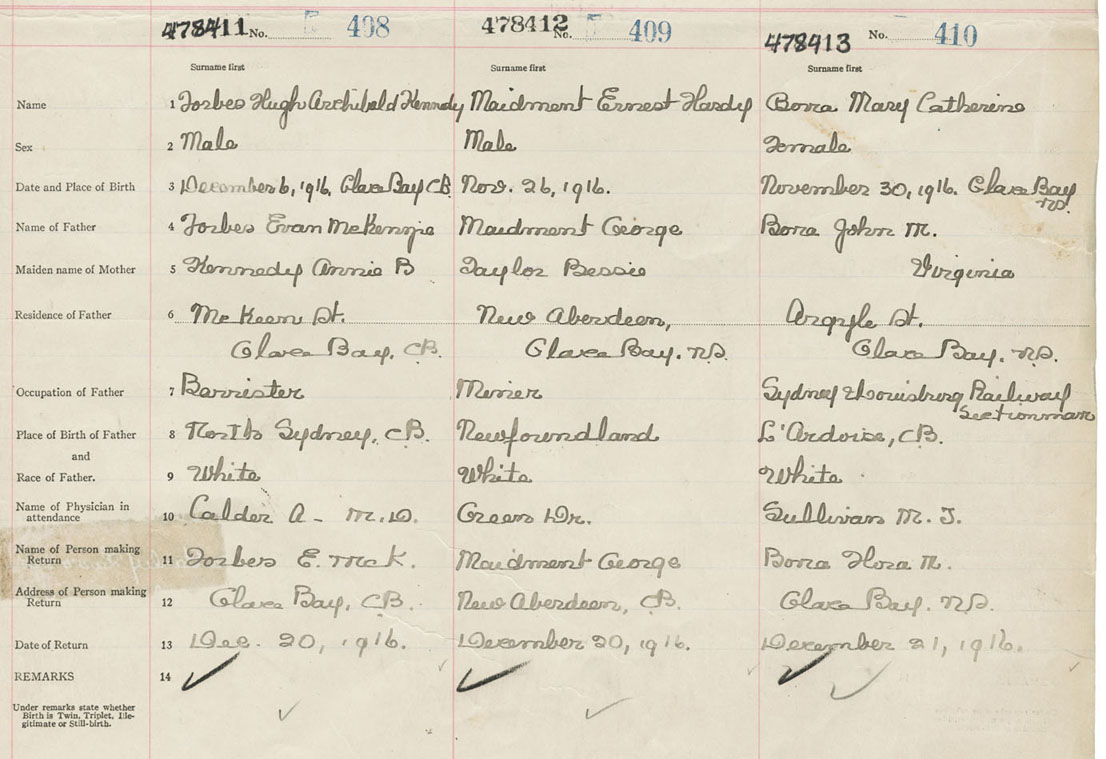 478411 No. 408 478412 No. 409 478413 No. 410
Surname first Surname first Surname first
Name 1 Forbes Hugh Archibald Kennedy Maidment Ernest Hardy Borra Mary Catherine
Sex 2 Male Male Female
Date and Place of Birth 3 December 6, 1916. Glace Bay CB Nov. 26, 1916. November 30, 1916. Glace Bay
N.S.
Name of Father 4 Forbes Evan McKenzie Maidment George Borra John M.
Maiden name of Mother 5 Kennedy Annie B Taylor Bessie Virginia
Residence of Father 6 McKeen St. New Aberdeen, Argyle St.
Glace Bay, CB. Glace Bay. N.S. Glace Bay. N.S.
Occupation of Father 7 Barrister Miner Sydney & Louisburg Railway
Sectionman
Place of Birth of Father 8 North Sydney, CB. Newfoundland L'Ardoise, CB.
and
Race of Father. 9 White White White
Name of Physician in
attendance 10 Calder A - M.D. Green Dr. Sullivan M. J.
Name of Person making
Return 11 Forbes E. McK. Maidment George Borra Flora M.
Address of Person making
Return 12 Glace Bay, CB. New Aberdeen, CB. Glace Bay. N.S.
Date of Return 13 Dec. 20, 1916. December 20, 1916. December 21, 1916.
REMARKS 14
Under remarks state whether
Birth is Twin, Triplet, Ille-
gitimate or Still-birth.